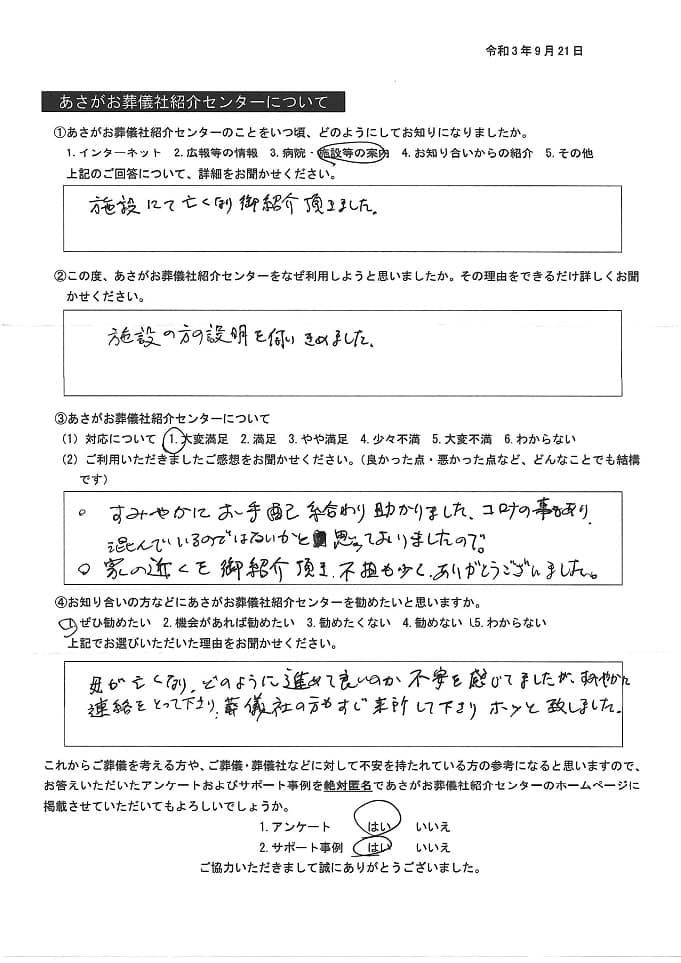 令和3年9月21日
あさがお葬儀社紹介センターについて
①あさがお葬儀社紹介センターのことをいつ頃、どのようにしてお知りになりましたか。
1.インターネット 2.広報等の情報 3.病院・施設等の案内 4.お知り合いからの紹介 5.その他
上記のご回答について、詳細をお聞かせください。
施設にて亡くなり御紹介頂きました。
②この度、あさがお葬儀社紹介センターをなぜ利用しようと思いましたか。その理由をできるだけ詳しくお聞
かせください。
施設の方の説明を伺いきめました、
③あさがお葬儀社紹介センターについて
(1) 対応について 1.大変満足 2.満足 3.やや満足 4.少々不満 5.大変不満 6.わからない
(2) ご利用いただきましたご感想をお聞かせください。(良かった点・悪かった点など、どんなことでも結構
です)
○ すみやかにお手配 助かりました、コロナの事もあり、
混んでいるのではないかと思っておりましたので。
○ 家の近くを御紹介頂き、不担も少く、ありがとうございました。
④お知り合いの方などにあさがお葬儀社紹介センターを勧めたいと思いますか。
1.ぜひ勧めたい 2.機会があれば勧めたい 3.勧めたくない 4.勧めない 5.わからない
上記でお選びいただいた理由をお聞かせください。
母が亡くなり、どのように進めて良いのか不安を感じてましたが、すみやかに
連絡をとって下さり、葬儀社の方もすぐ来所して下さりホッと致しました。
これからご葬儀を考える方や、ご葬儀・葬儀社などに対して不安を持たれている方の参考になると思いますので、
お答えいただいたアンケートおよびサポート事例を絶対匿名であさがお葬儀社紹介センターのホームページに
掲載させていただいてもよろしいでしょうか。
1.アンケート はい いいえ
2.サポート事例 はい いいえ
ご協力いただきまして誠にありがとうございました。